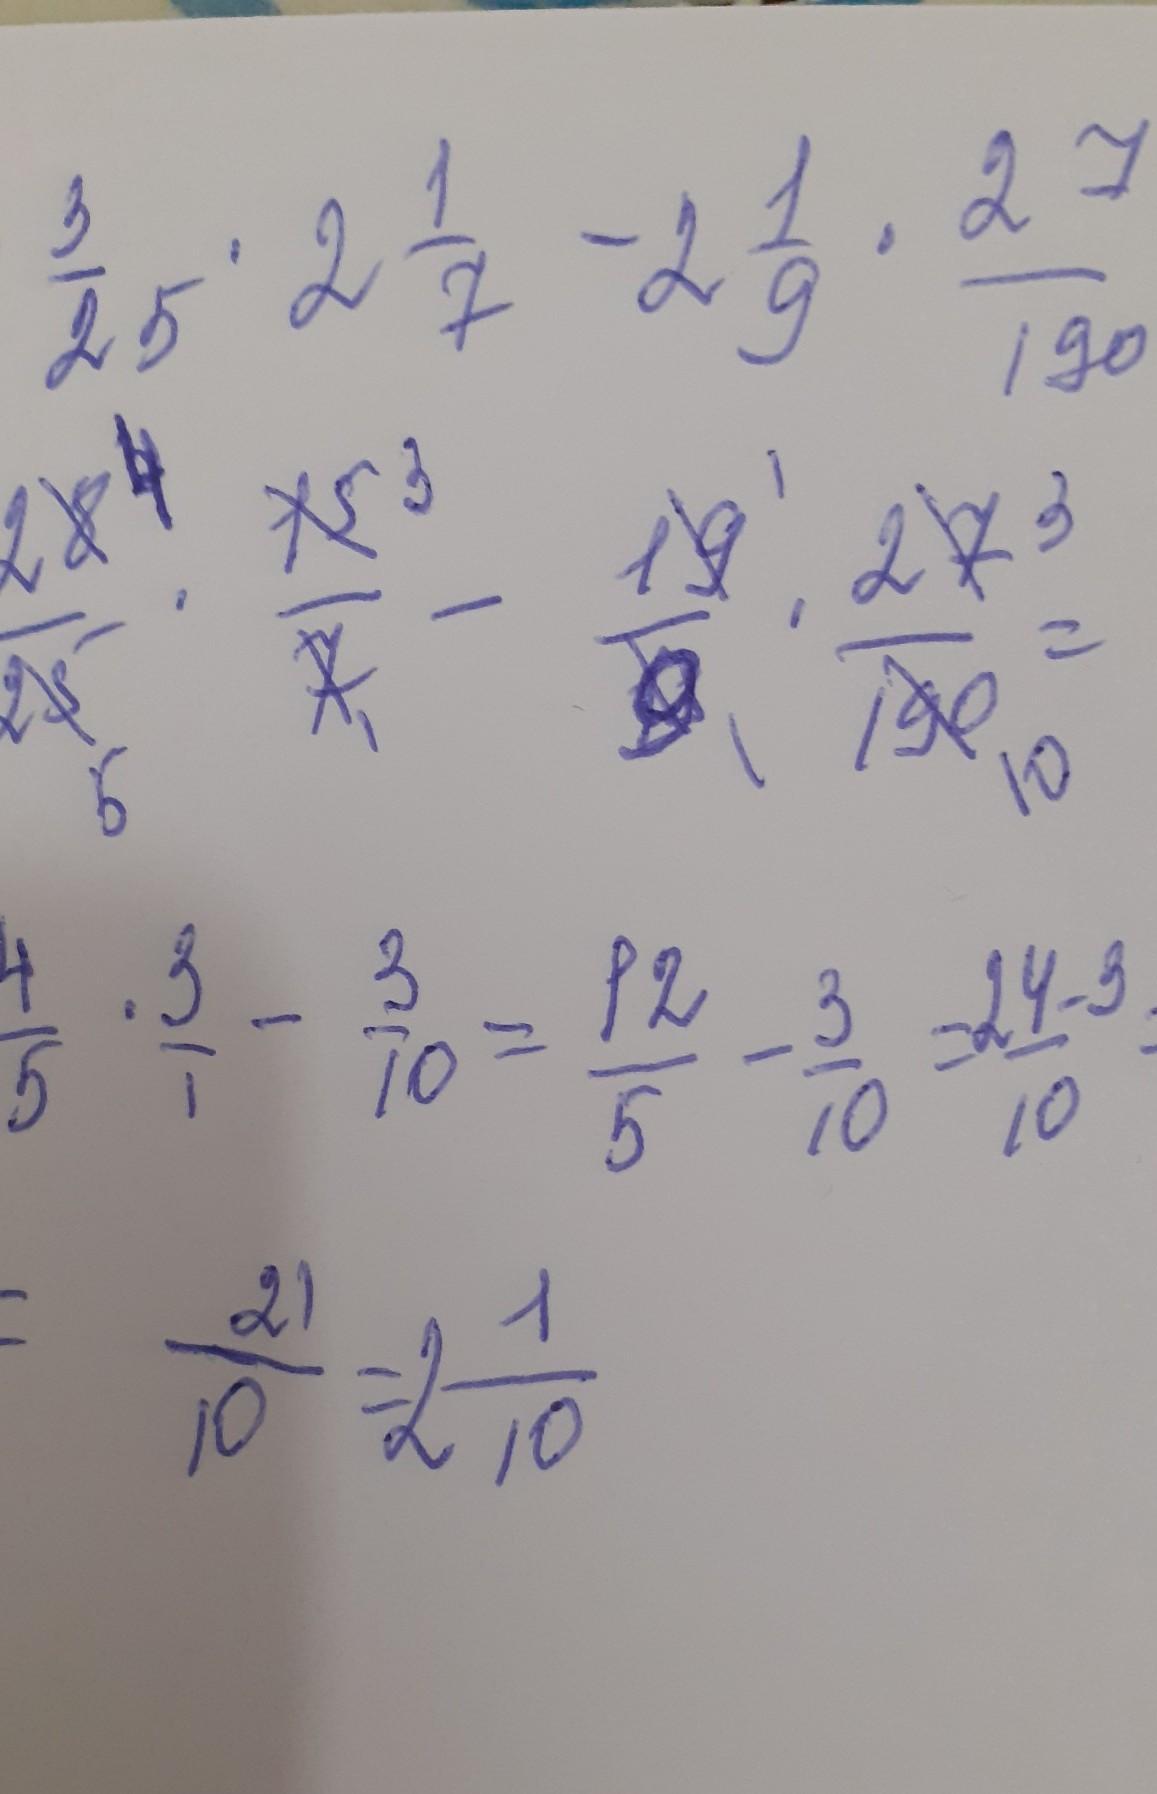 3/25 · 2 1/7 - 2 1/9 · 27/190
28 4/25 5 · 15 3/7 1 - 19 1/9 1 · 27 3/190 10 =
4/5 · 3/1 - 3/10 = 12/5 - 3/10 = 24-3/10 =
= 21/10 = 2 1/10